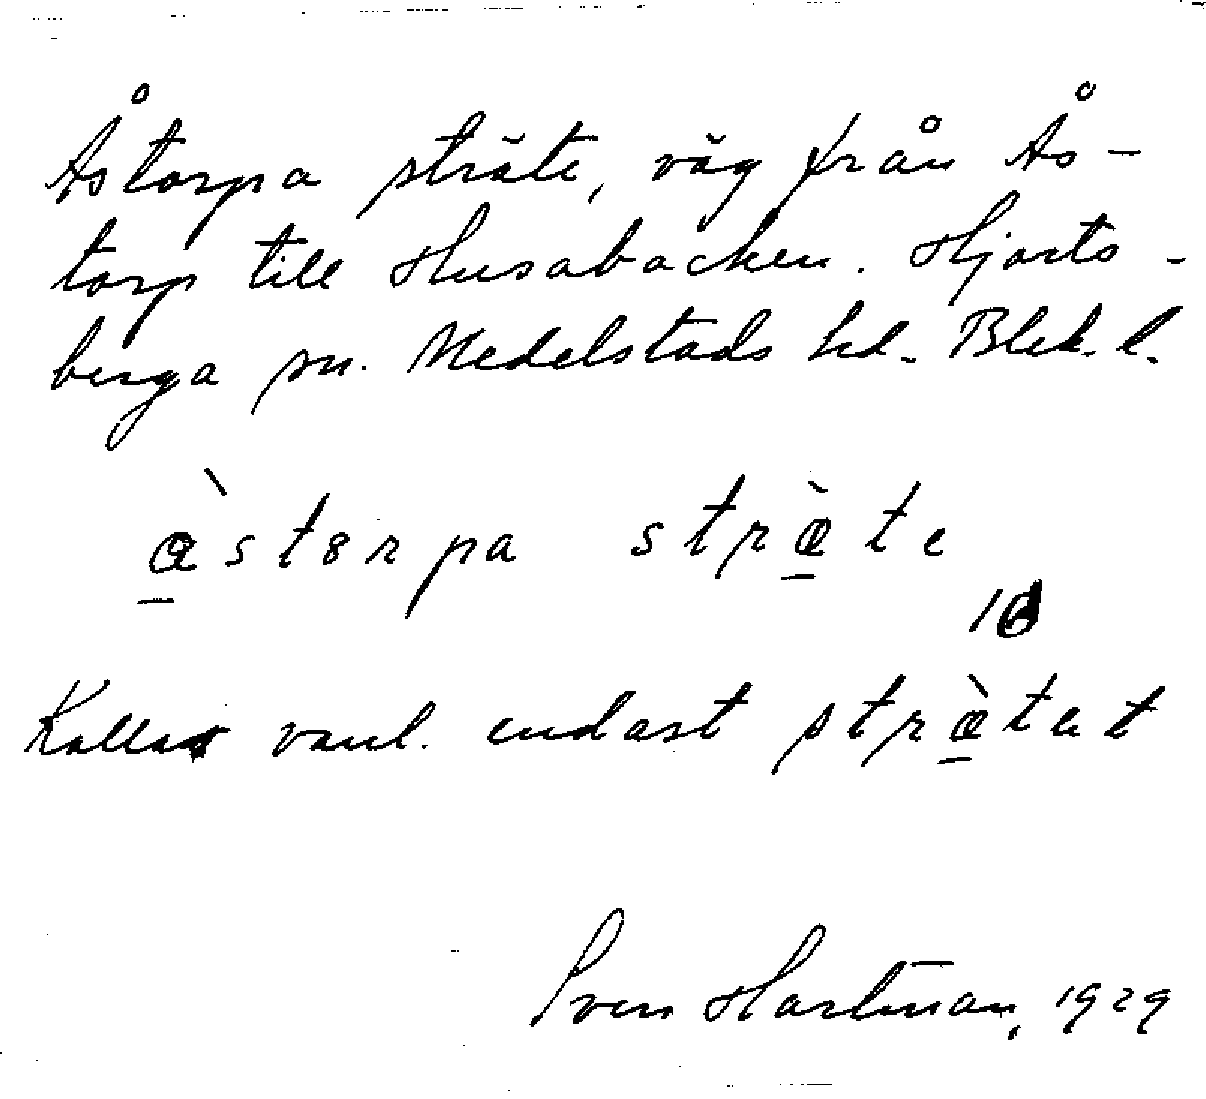 Åstorpa sträte, väg från Ås-
torp till Husabacken. Hjorts-
berga sn. Medelstads hd. Blek. l.
æ̀storpa stræ̀te
16
Kallas vanl. endast stræ̀tet
Sven Hartman, 1929